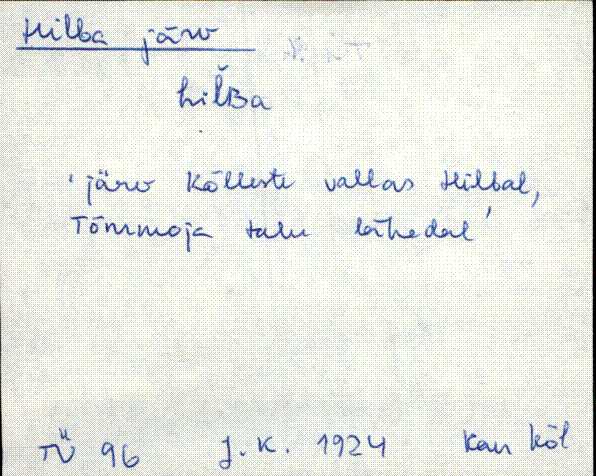 Hilba järv
hil̆Ba
'järv Kõlleste vallas Hilbal,
Tõnumoja talu lähedal'
TÜ 96 J. K. 1924 Kan Kõl